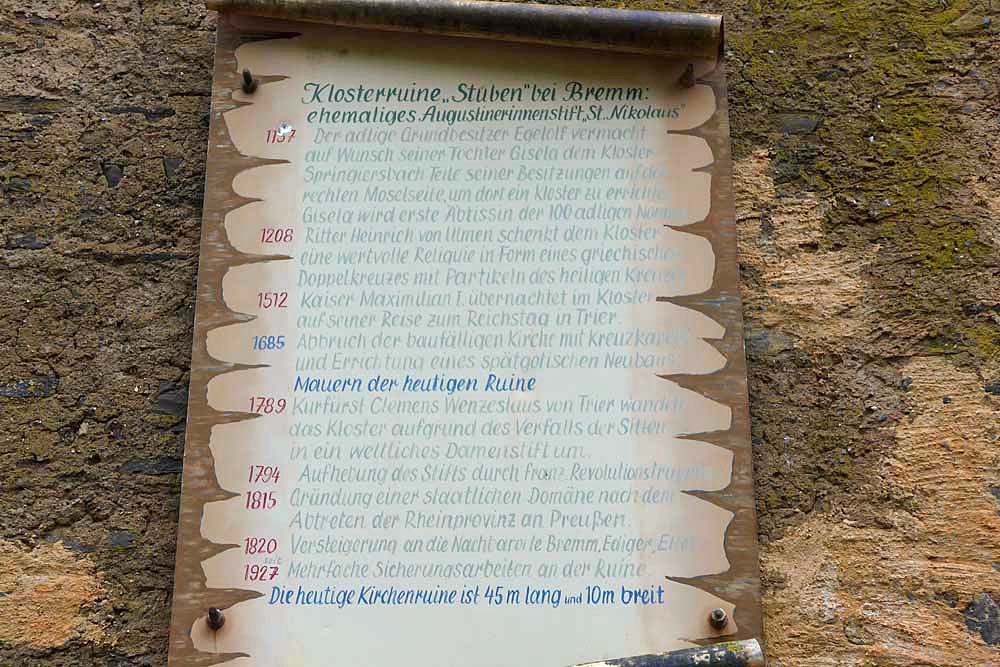 Klosterruine „Stuben" bei Bremm:
ehemaliges Augustinerinnenstift „St. Nikolaus"
1137 Der adlige Grundbesitzer Egelolf vermacht
auf Wunsch seiner Tochter Gisela dem Kloster
Springiersbach Teile seiner Besitzungen auf der
rechten Moselseite, um dort ein Kloster zu errichten
Gisela wird erste Äbtissin der 100 adligen Nonnen
1208 Ritter Heinrich von Ulmen schenkt dem Kloster
eine wertvolle Reliquie in Form eines griechischen
Doppelkreuzes mit Partikeln des heiligen Kreuzes
1512 Kaiser Maximilian I. übernachtet im Kloster
auf seiner Reise zum Reichstag in Trier.
1685 Abbruch der baufälligen Kirche mit Kreuzkapelle
und Errichtung eines spätgotischen Neubaus
Mauern der heutigen Ruine
1789 Kurfürst Clemens Wenzeslaus von Trier wandelt
das Kloster aufgrund des Verfalls der Sitten
in ein weltliches Damenstift um.
1794 Aufhebung des Stifts durch franz. Revolutionstruppen
1815 Gründung einer staatlichen Domäne nach dem
Abtreten der Rheinprovinz an Preußen.
1820 Versteigerung an die Nachbarorte Bremm, Ediger, Eller
seit 1927 Mehrfache Sicherungsarbeiten an der Ruine.
Die heutige Kirchenruine ist 45 m lang und 10 m breit